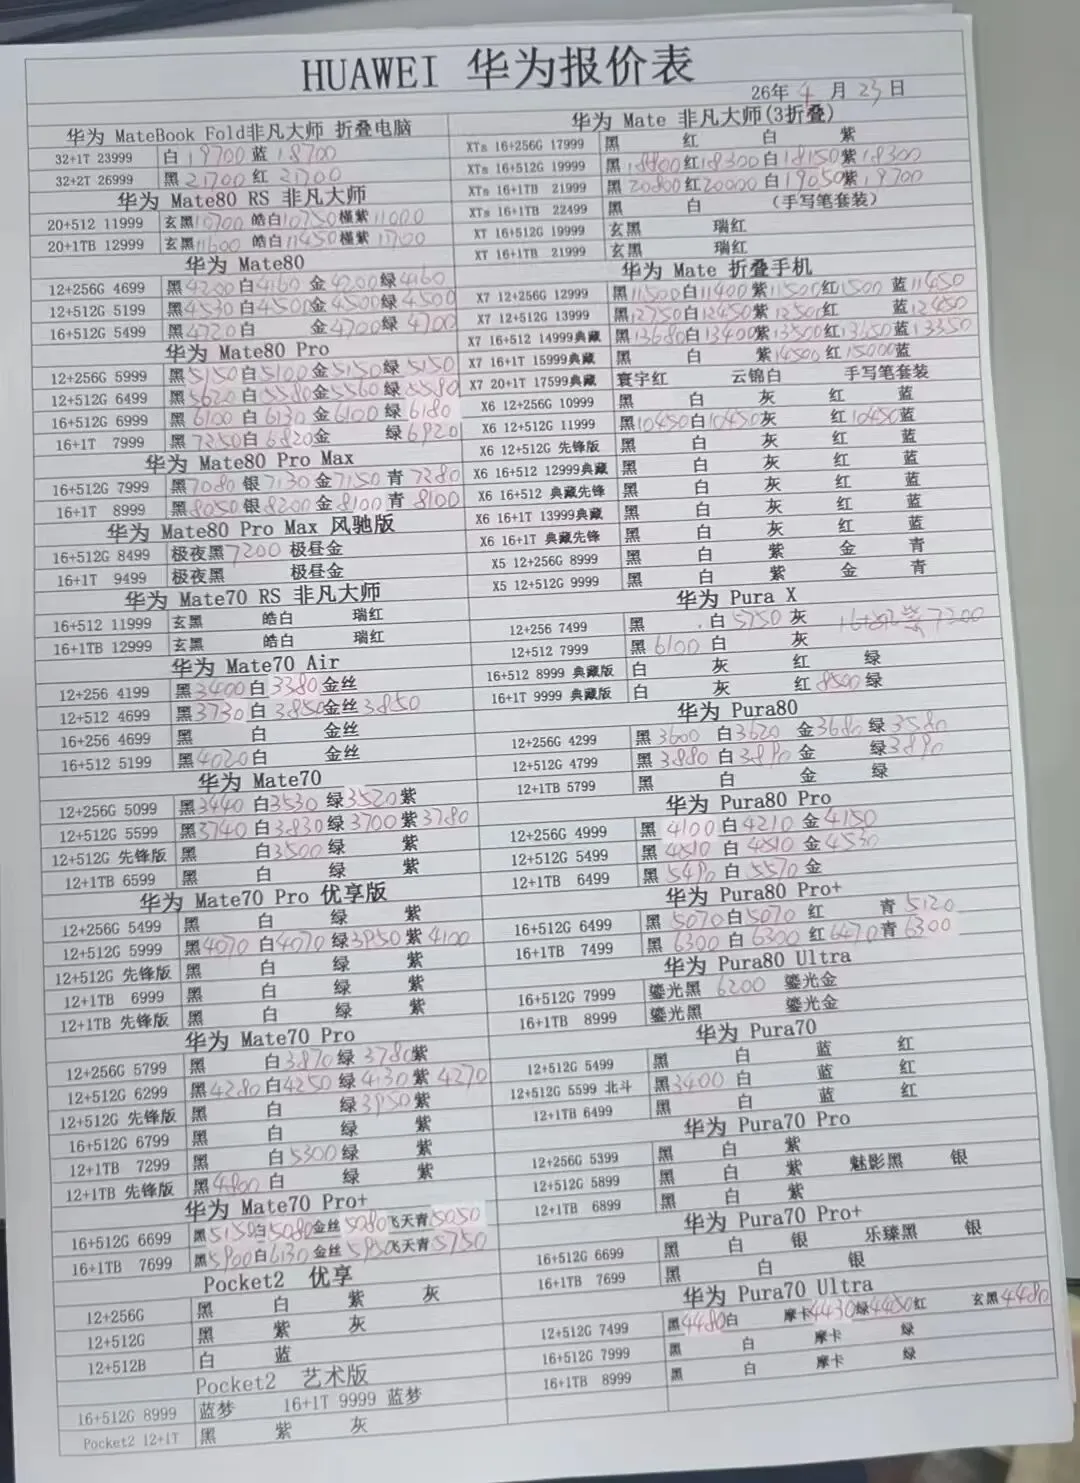 HUAWEI 华为报价表
26年 4 月 23 日
华为 MateBook Fold非凡大师 折叠电脑
32+1T 23999 白 19700 蓝 18700
32+2T 26999 黑 21700 红 21700
华为 Mate80 RS 非凡大师
20+512 11999 玄黑10700 皓白10750槿紫11000
20+1TB 12999 玄黑11600 皓白11450槿紫11700
华为 Mate80
12+256G 4699 黑4200白4160 金 4200绿4160
12+512G 5199 黑4530白4500金4500绿4500
16+512G 5499 黑4720白 金4700绿 4700
华为 Mate80 Pro
12+256G 5999 黑5150白5100金5150绿 5150
12+512G 6499 黑5620白5580金5560绿5580
16+512G 6999 黑6100白6130金6100绿6180
16+1T 7999 黑7250白6820金 绿6920
华为 Mate80 Pro Max
16+512G 7999 黑7080银7130金7150青7280
16+1T 8999 黑8050银8200金8100青 8100
华为 Mate80 Pro Max 风驰版
16+512G 8499 极夜黑7200 极昼金
16+1T 9499 极夜黑 极昼金
华为 Mate70 RS 非凡大师
16+512 11999 玄黑 皓白 瑞红
16+1TB 12999 玄黑 皓白 瑞红
华为 Mate70 Air
12+256 4199 黑3400白3380金丝
12+512 4699 黑3730白3850金丝3850
16+256 4699 黑 白 金丝
16+512 5199 黑4020白 金丝
华为 Mate70
12+256G 5099 黑3440 白3530绿3520紫
12+512G 5599 黑3740 白3830绿3700紫3780
12+512G 先锋版 黑 白3500绿 紫
12+1TB 6599 黑 白 绿 紫
华为 Mate70 Pro 优享版
12+256G 5499 黑 白 绿 紫
12+512G 5999 黑4070白4070绿3950紫4100
12+512G 先锋版 黑 白 绿 紫
12+1TB 6999 黑 白 绿 紫
12+1TB 先锋版 黑 白 绿 紫
华为 Mate70 Pro
12+256G 5799 黑 白3870绿 3780紫
12+512G 6299 黑4280白4250绿4130紫4270
12+512G 先锋版 黑 白 绿3950紫
16+512G 6799 黑 白 绿 紫
12+1TB 7299 黑 白5300绿 紫
12+1TB 先锋版 黑4800白 绿 紫
华为 Mate70 Pro+
16+512G 6699 黑5150白5080金丝5080飞天青5050
16+1TB 7699 黑5900白6130金丝5950飞天青5750
Pocket2 优享
12+256G 黑 白 紫 灰
12+512G 黑 紫 灰
12+512B 白 蓝
Pocket2 艺术版
16+512G 8999 蓝梦 16+1T 9999 蓝梦
Pocket2 12+1T 黑 紫 灰
华为 Mate 非凡大师(3折叠)
XTs 16+256G 17999 黑 红 白 紫
XTs 16+512G 19999 黑18800红18300白18150紫18300
XTs 16+1TB 21999 黑20800红20000白19050紫19700
XTs 16+1TB 22499 黑 白 (手写笔套装)
XT 16+512G 19999 玄黑 瑞红
XT 16+1TB 21999 玄黑 瑞红
华为 Mate 折叠手机
X7 12+256G 12999 黑11500白11400紫11500红1500 蓝11450
X7 12+512G 13999 黑12750白12450紫12500红 蓝12450
X7 16+512 14999典藏 黑13680白13400紫13500红13650蓝13350
X7 16+1T 15999典藏 黑 白 紫14500红15000蓝
X7 20+1T 17599典藏 寰宇红 云锦白 手写笔套装
X6 12+256G 10999 黑 白 灰 红 蓝
X6 12+512G 11999 黑10450白10450灰 红10450蓝
X6 12+512G 先锋版 黑 白 灰 红 蓝
X6 16+512 12999典藏 黑 白 灰 红 蓝
X6 16+512 典藏先锋 黑 白 灰 红 蓝
X6 16+1T 13999典藏 黑 白 灰 红 蓝
X6 16+1T 典藏先锋 黑 白 灰 红 蓝
X5 12+256G 8999 黑 白 紫 金 青
X5 12+512G 9999 黑 白 紫 金 青
华为 Pura X
12+256 7499 黑 白5750灰 紫7200
12+512 7999 黑6100白 灰
16+512 8999 典藏版 白 灰 红 绿
16+1T 9999 典藏版 白 灰 红8500绿
华为 Pura80
12+256G 4299 黑3600 白3620 金3680绿3580
12+512G 4799 黑3880 白3890 金 绿3890
12+1TB 5799 黑 白 金 绿
华为 Pura80 Pro
12+256G 4999 黑 4100白4210 金4150
12+512G 5499 黑 4510 白 4510 金4530
12+1TB 6499 黑 5490 白 5570 金
华为 Pura80 Pro+
16+512G 6499 黑 5070白5070 红 青 5120
16+1TB 7499 黑 6300 白 6300 红6470青6300
华为 Pura80 Ultra
16+512G 7999 鎏光黑 6200 鎏光金
16+1TB 8999 鎏光黑 鎏光金
华为 Pura70
12+512G 5499 黑 白 蓝 红
12+512G 5599 北斗 黑3400 白 蓝 红
12+1TB 6499 黑 白 蓝 红
华为 Pura70 Pro
12+256G 5399 黑 白 紫
12+512G 5899 黑 白 紫 魅影黑 银
12+1TB 6899 黑 白 紫
华为 Pura70 Pro+
16+512G 6699 黑 白 银 乐臻黑 银
16+1TB 7699 黑 白 银
华为 Pura70 Ultra
12+512G 7499 黑4480白 摩卡4430绿4450红 玄黑4480
16+512G 7999 黑 白 摩卡 绿
16+1TB 8999 黑 白 摩卡 绿